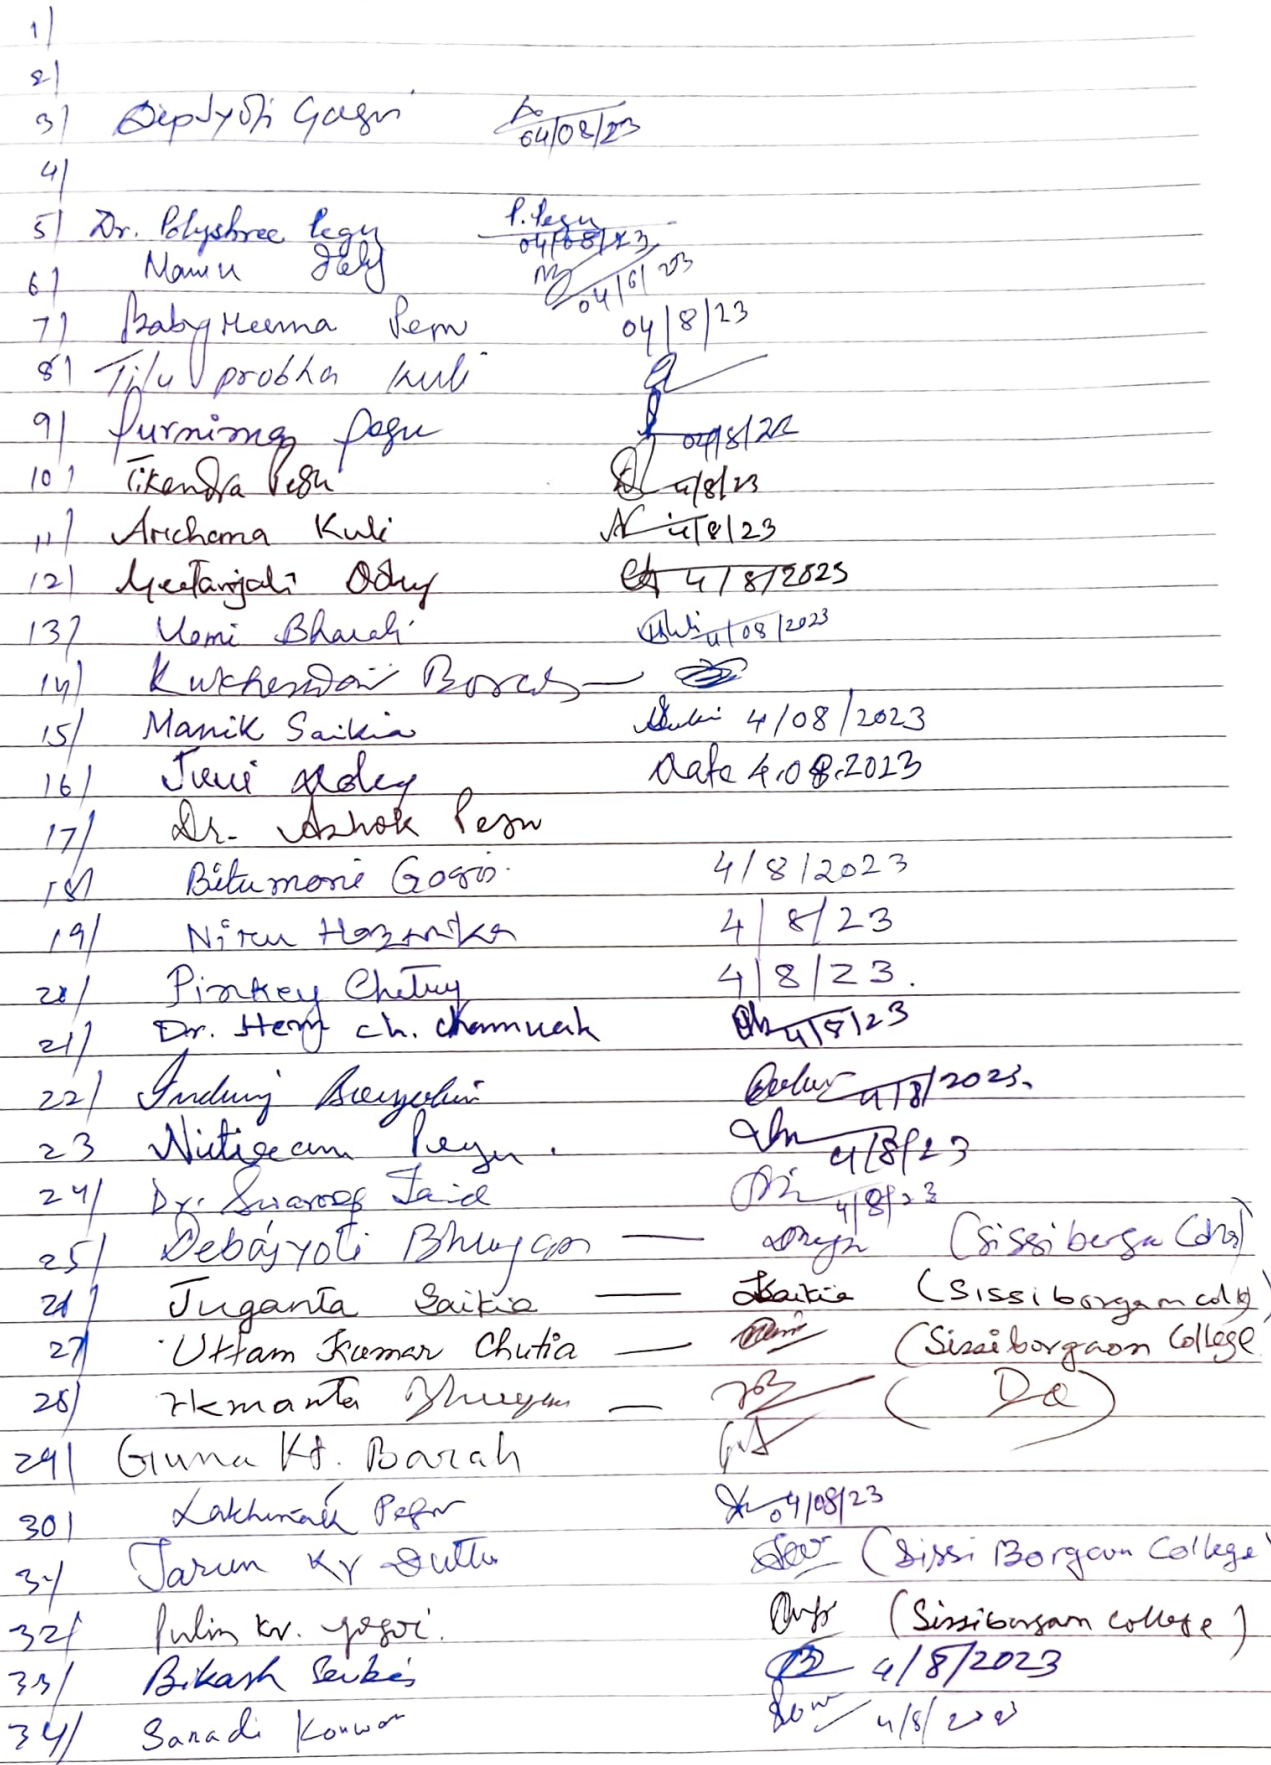 1/
2/
3/ Dipjyoti Gogoi 04/08/23
4/
5/ Dr. Polyshree Pegu P. Pegu 04/08/23
6/ Mamu 04/6/23
7/ Baby Heema Pegu 04/8/23
8/ Tilu probha kuli
9/ Purnima Pegu 04/8/22
10/ Tikendra Pegu 4/8/23
11/ Archana Kuli 4/8/23
12/ Geetanjali Doley 4/8/2023
13/ Bharali 4/08/2023
14/ Borah
15/ Manik Saikia 4/08/2023
16/ Juni Doley Date 4.08.2023
17/ Dr. Ashok Pegu
18/ Bitumoni Gogoi. 4/8/2023
19/ Niru Hazarika 4/8/23
20/ Pinkey Chetry 4/8/23.
21/ Dr. Hem ch. Chamuah 4/8/23
22/ 4/8/2023.
23 Pegu. 4/8/23
24/ Dr. Swaroop Taid 4/8/23
25/ Debajyoti Bhuyan —
26/ Juganta Saikia — Saikia (Sissiborgaon
27/ Uttam Kumar Chutia — (Sissiborgaon College
28/ Hemanta Bhuyan — (Do)
29/ Guna Kt. Barah
30/ Pegu 04/08/23
31/ Tarun Kr Dutta (Sissi Borgaon College
32/ Pulin Kr. Gogoi. (Sissiborgaon College)
33/ Bikash 4/8/2023
34/ Konwar 4/8/2023